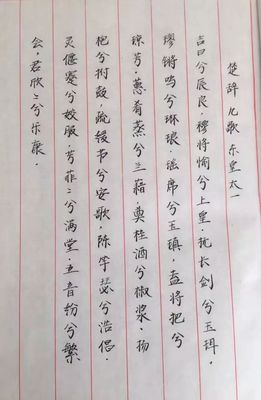 楚辞九歌东皇太一
吉日兮辰良·穆将愉兮上皇·抚长剑兮玉珥·
璆锵鸣兮琳琅·瑶席兮玉瑱·盍将把兮
琼芳·蕙肴蒸兮兰藉·奠桂酒兮椒浆·扬
枹兮拊鼓·疏缓节兮安歌·陈竽瑟兮浩倡·
灵偃蹇兮姣服·芳菲〻兮满堂·五音纷兮繁
会·君欣〻兮乐康·